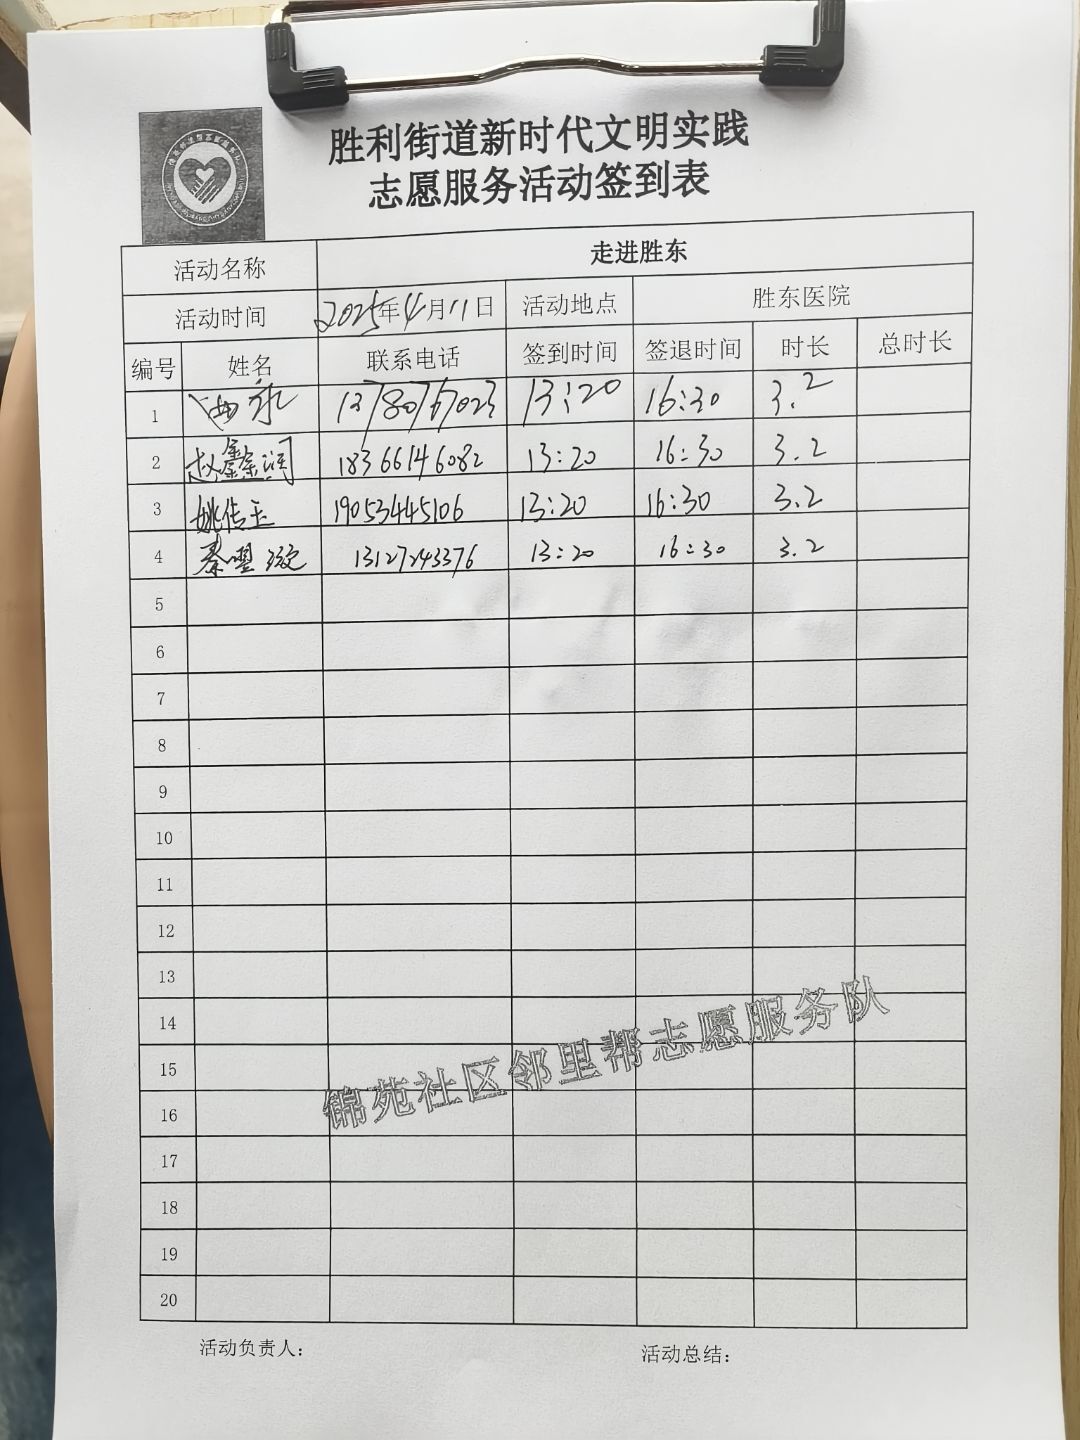 胜利街道新时代文明实践
志愿服务活动签到表
活动名称 走进胜东
活动时间 2025年4月11日 活动地点 胜东医院
编号 姓名 联系电话 签到时间 签退时间 时长 总时长
1 永 13780767023 13:20 16:30 3.2
2 赵鑫润 18366146082 13:20 16:30 3.2
3 姚传玉 19053445106 13:20 16:30 3.2
4 秦 13127243376 13:20 16:30 3.2
5
6
7
8
9
10
11
12
13
14
15
16
17
18
19
20
锦苑社区邻里帮志愿服务队
活动负责人: 活动总结: